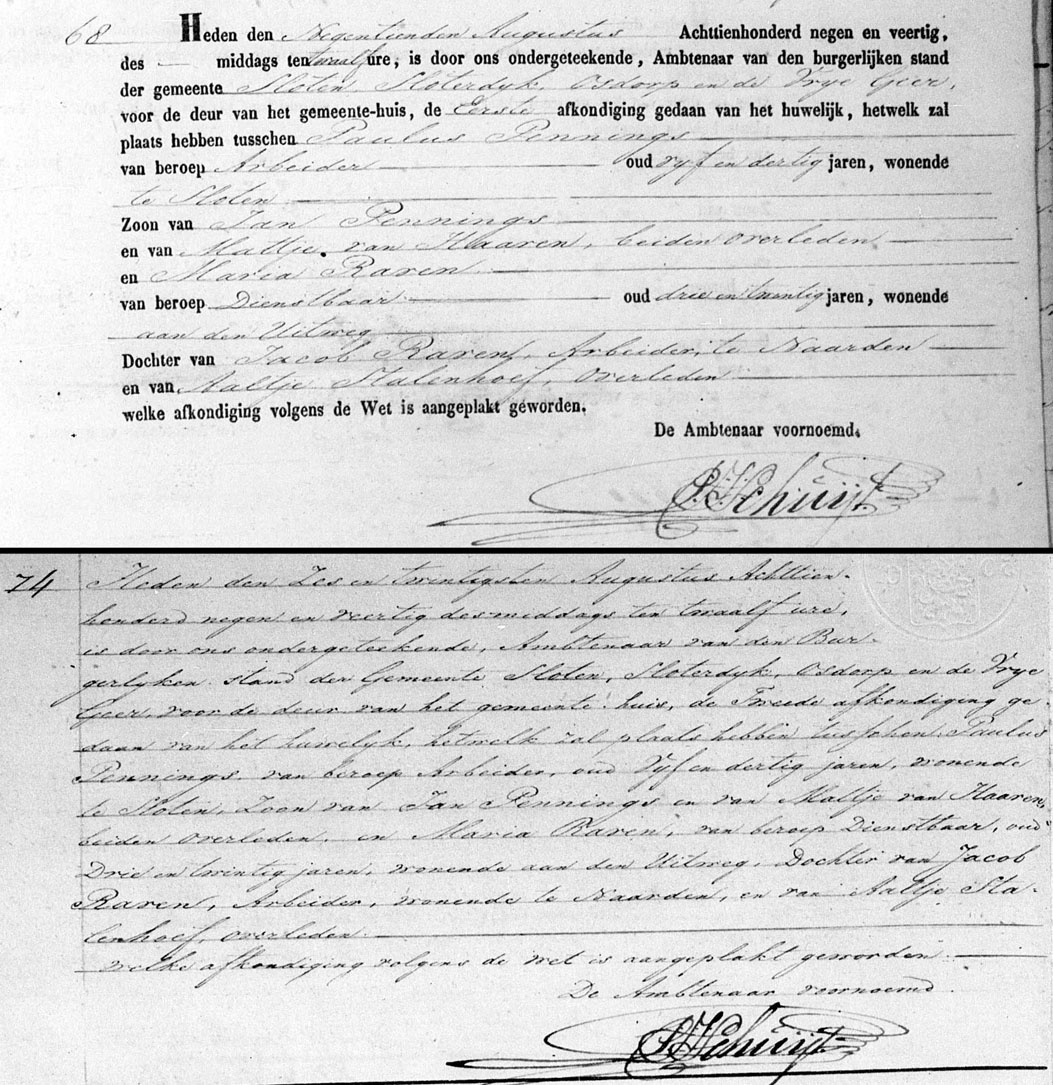 68 Heden den Negentienden Augustus Achttienhonderd negen en veertig,
des — middags ten twaalf ure, is door ons ondergeteekende, Ambtenaar van den burgerlijken stand
der gemeente Sloten, Sloterdyk, Osdorp en de Vrye Geer,
voor de deur van het gemeente-huis, de Eerste afkondiging gedaan van het huwelijk, hetwelk zal
plaats hebben tusschen Paulus Pennings
van beroep Arbeider oud vyf en dertig jaren, wonende
te Sloten
Zoon van Jan Pennings
en van Maltje van Haaren, beiden overleden
en Maria Raven
van beroep Dienstbaar oud drie en twintig jaren, wonende
aan den Uitweg
Dochter van Jacob Raven, Arbeider, te Naarden
en van Aaltje Stalenhoef, overleden
welke afkondiging volgens de Wet is aangeplakt geworden.
De Ambtenaar voornoemd.
Schuijt
74 Heden den Zes en twintigsten Augustus Achttien-
honderd negen en veertig des middags ten twaalf ure,
is door ons ondergeteekende, Ambtenaar van den Bur-
gerlyken stand der Gemeente Sloten, Sloterdyk, Osdorp en de Vrye
Geer, voor de deur van het gemeente-huis, de Tweede afkondiging ge-
daan van het huwelyk, hetwelk zal plaats hebben tusschen Paulus
Pennings van beroep Arbeider, oud Vyf en dertig jaren, wonende
te Sloten, Zoon van Jan Pennings en van Maltje van Haaren,
beiden overleden, en Maria Raven, van beroep Dienstbaar, oud
Drie en twintig jaren, wonende aan den Uitweg, Dochter van Jacob
Raven, Arbeider, wonende te Naarden, en van Aaltje Sta-
lenhoef, overleden
welke afkondiging volgens de wet is aangeplakt geworden
De Ambtenaar voornoemd
Schuijt